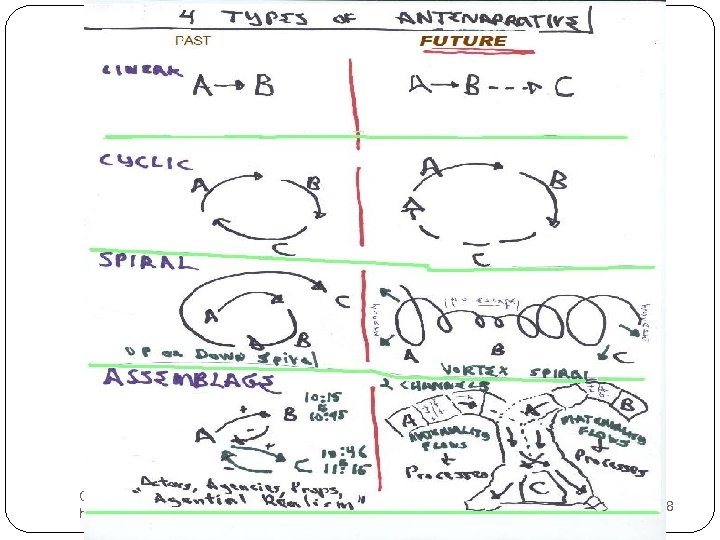 4 TYPES OF ANTENARRATIVE
PAST FUTURE
LINEAR
A B A B C
CYCLIC
A B C
A B C A
SPIRAL
A B C A
UP or DOWN Spiral
(no escape)
A B C
VORTEX SPIRAL
ASSEMBLAGE
2 CHANNELS
A B C
10:15
10:45
10:46
11:15
"Actors, Agencies, Props,
Agential Realism"
A A B
MATERIALITY
FLOWS
+
Processes
MATERIALITY
FLOWS
+
Processes
C
8